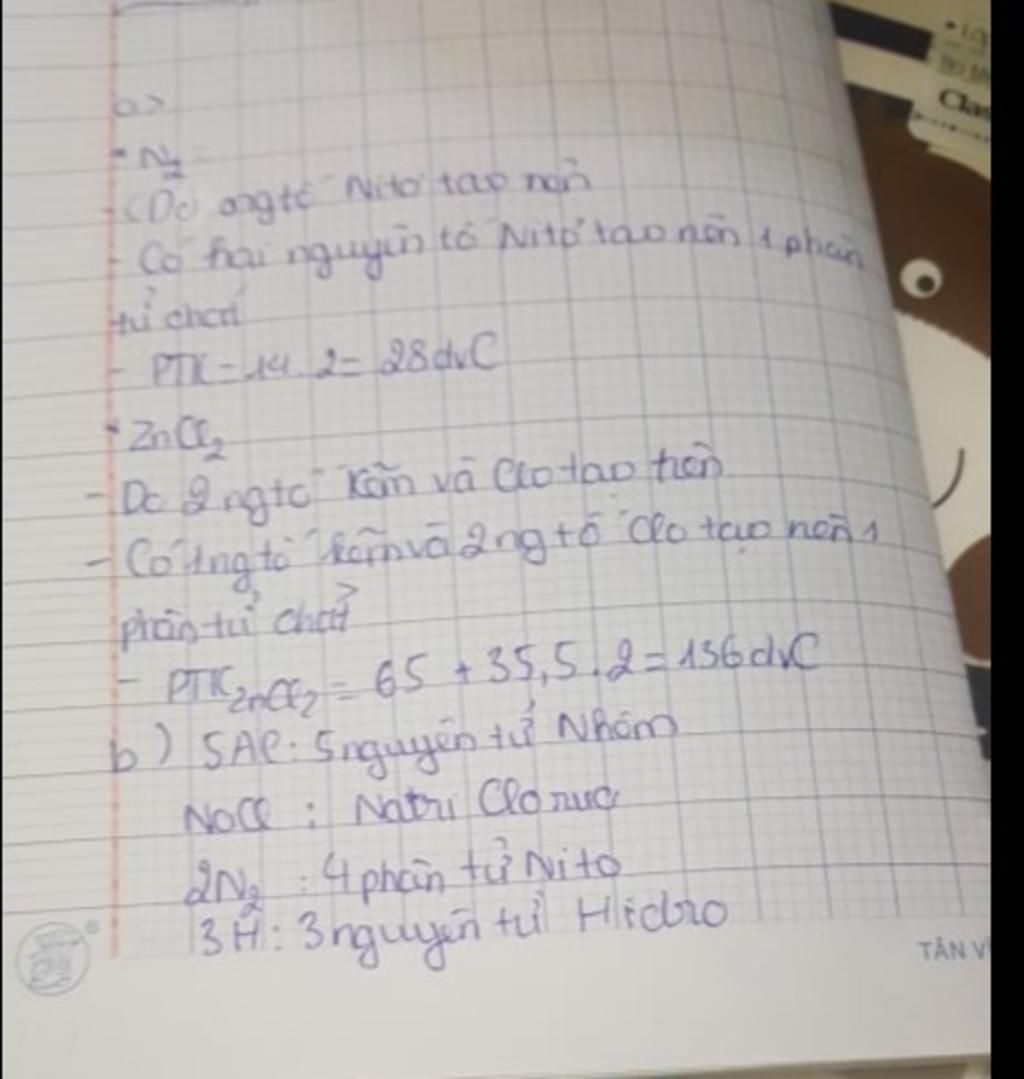 a>
- N₂
- (Do ngtố Nitơ tạo nên
- Có hai nguyên tố Nitơ tạo nên 1 phân
tử chất
- PTK = 14 . 2 = 28 đvC
- ZnCl₂
- Do 2 ngtố Kẽm và Clo tạo nên
- Có 1 ng tố kẽm và 2 ng tố Clo tạo nên 1
phân tử chất
- PTK ZnCl₂ = 65 + 35,5 . 2 = 136 đvC
b) 5Al : 5 nguyên tử Nhôm
NaCl : Natri Clorua
2N₂ : 4 phân tử Nitơ
3H : 3 nguyên tử Hiđro
TÂN V
Clas